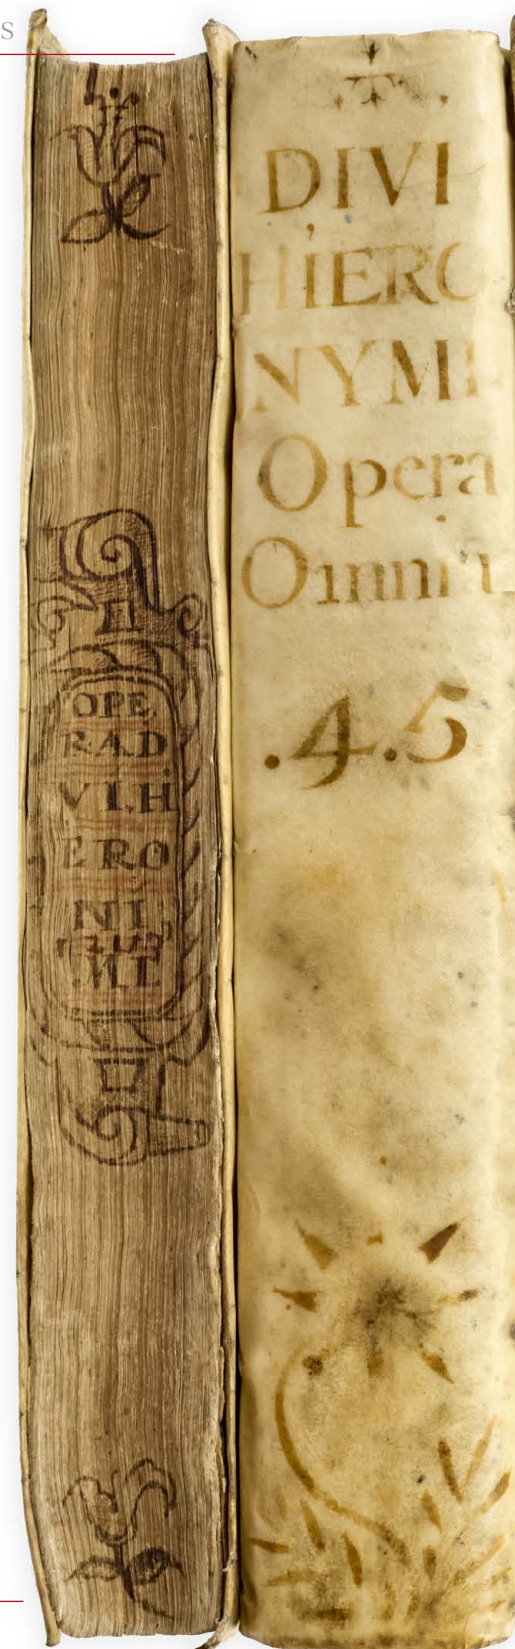 S
OPE,
RA.D
VI.H
ERO
NI,
MI
DIVI
HIERO
NYMI
Opera
Omnia
.4.5